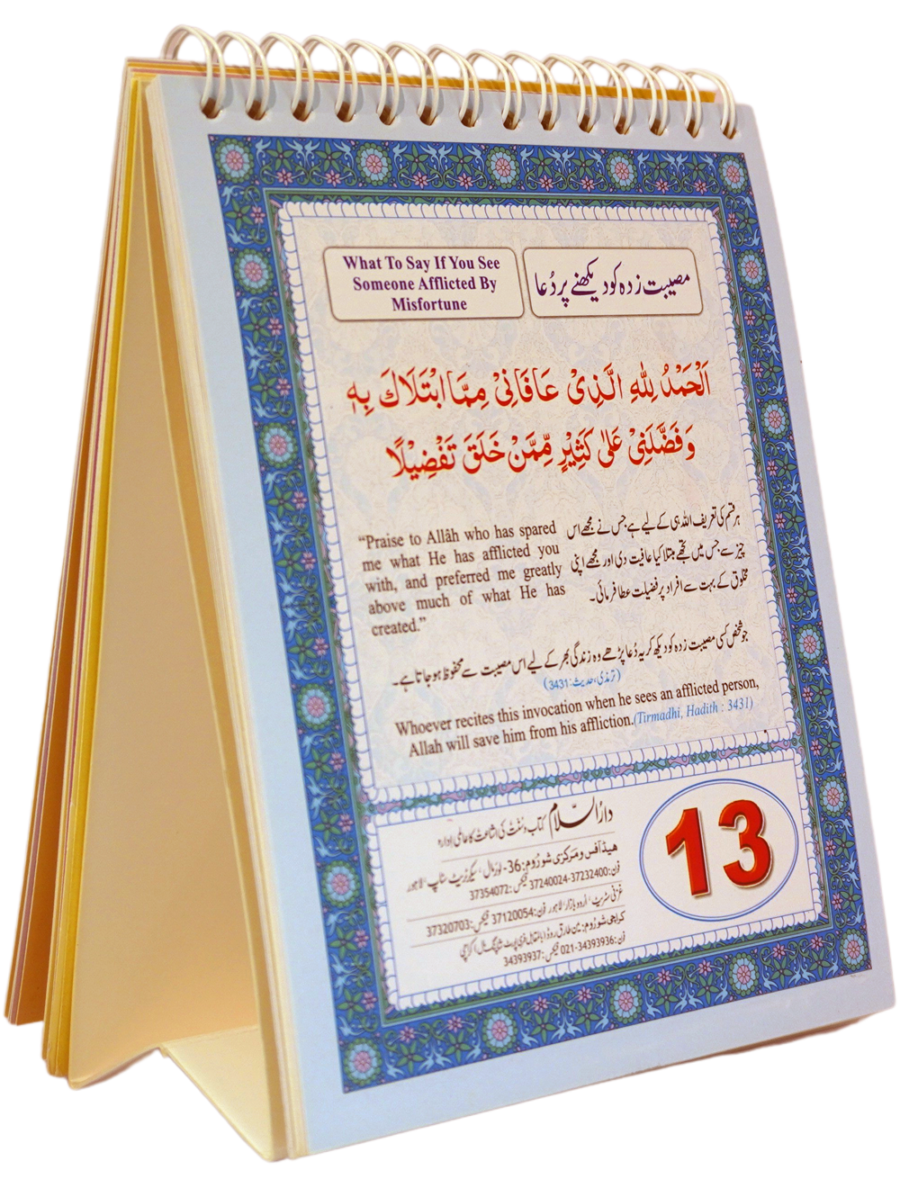 What To Say If You See
Someone Afflicted By
Misfortune
مصیبت زدہ کو دیکھنے پر دُعا
اَلْحَمْدُ لِلّٰهِ الَّذِیْ عَافَانِیْ مِمَّا ابْتَلَاكَ بِهٖ
وَفَضَّلَنِیْ عَلٰی كَثِیْرٍ مِّمَّنْ خَلَقَ تَفْضِیْلًا
“Praise to Allâh who has spared
me what He has afflicted you
with, and preferred me greatly
above much of what He has
created.”
ہر قسم کی تعریف اللہ ہی کے لیے ہے جس نے مجھے اس
چیز سے جس میں تجھے مبتلا کیا عافیت دی اور مجھے اپنی
مخلوق کے بہت سے افراد پر فضیلت عطا فرمائی۔
جو شخص کسی مصیبت زدہ کو دیکھ کر یہ دُعا پڑھے وہ زندگی بھر کے لیے اس مصیبت سے محفوظ ہو جاتا ہے۔
(ترمذی، حدیث: 3431)
Whoever recites this invocation when he sees an afflicted person,
Allah will save him from his affliction.(Tirmadhi, Hadith : 3431)
دارُالسّلام کتاب و سُنّت کی اشاعت کا عالمی ادارہ
ہیڈ آفس و مرکزی شوروم: 36- لوئر مال، سیکرٹریٹ سٹاپ، لاہور
فون: 37232400-37240024 فیکس: 37354072
غزنی سٹریٹ، اُردو بازار، لاہور فون: 37120054 فیکس: 37320703
کراچی شوروم: مین طارق روڈ، بالمقابل فری پورٹ شاپنگ مال، کراچی
فون: 34393936-021 فیکس: 34393937
13